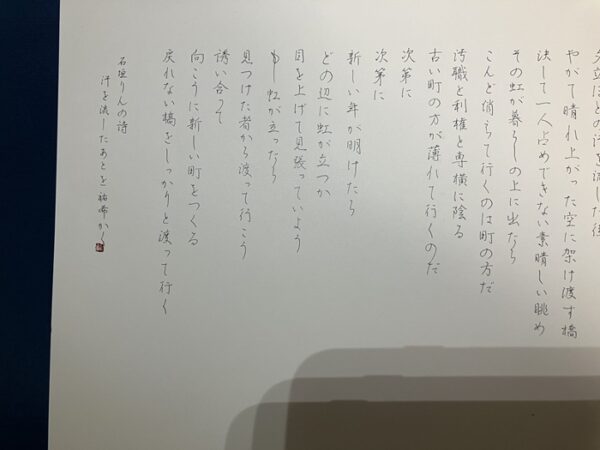 夕立ほどの汗を流した後
やがて晴れ上がった空に架け渡す橋
決して一人占めできない素晴しい眺め
その虹が暮らしの上に出たら
こんど消えて行くのは町の方だ
汚職と利権と専横に陰る
古い町の方が薄れて行くのだ
次第に
次第に
新しい年が明けたら
どの辺に虹が立つか
目を上げて見張っていよう
もし虹が立ったら
見つけた者から渡って行こう
誘い合って
向こうに新しい町をつくる
戻れない橋をしっかりと渡って行く
石垣りんの詩
汗を流したあとを 祐希かく